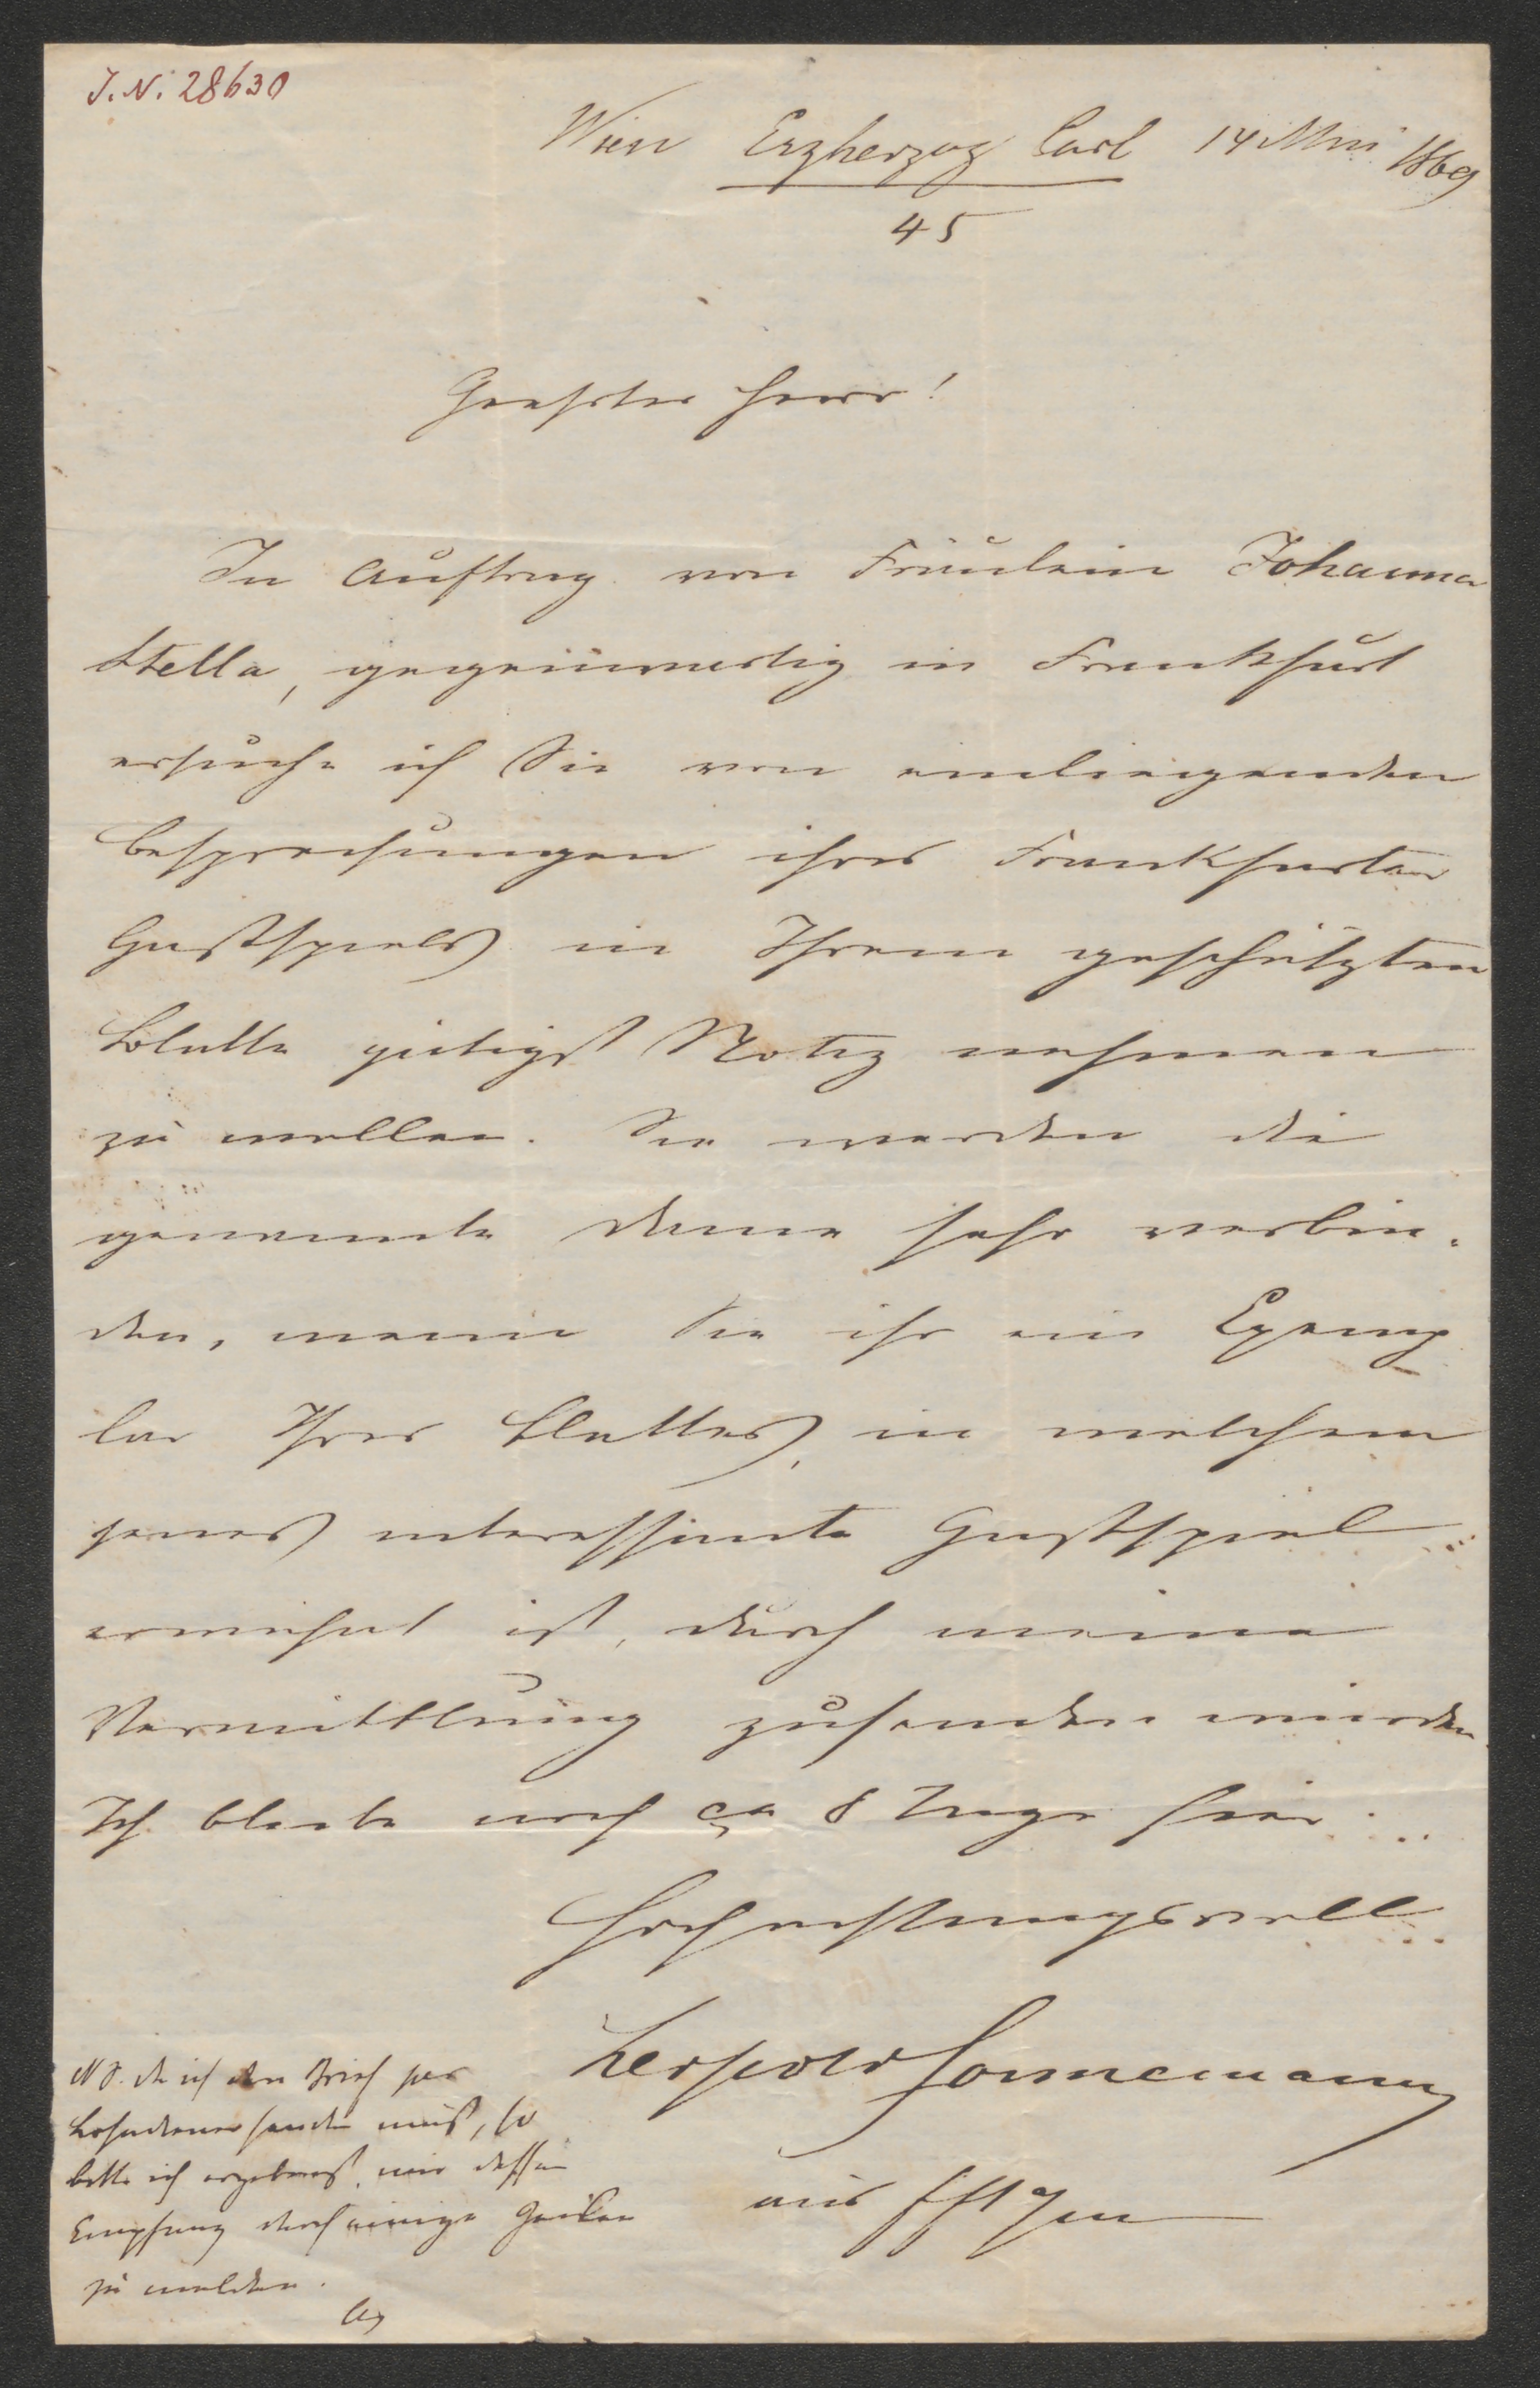 J. N. 28630
Wien Erzherzog Carl 14 Mai 1869
45
Geehrter Herr!
In Auftrag von Fräulein Johanna
Stella, gegenwärtig in Frankfurt
ersuche ich Sie von einliegenden
Besprechungen ihres Frankfurter
Gastspiels in Ihrem geschätzten
Blatte gütigst Notiz nehmen
zu wollen. Sie werden die
genannte Dame sehr verbin-
den, wenn Sie ihr ein Exemp
lar Ihres Blattes, in welchem
jenes interessante Gastspiel
erwähnt ist, durch meine
Vermittlung zusenden würden.
Ich bleibe noch ca 8 Tage hier.
Hochachtungsvoll
Leopold Sonnemann
aus
NB. da ich den Brief per
Lohndiener senden muß, so
bitte ich ergebenst, mir dessen
Empfang durch einige Zeilen
zu melden.